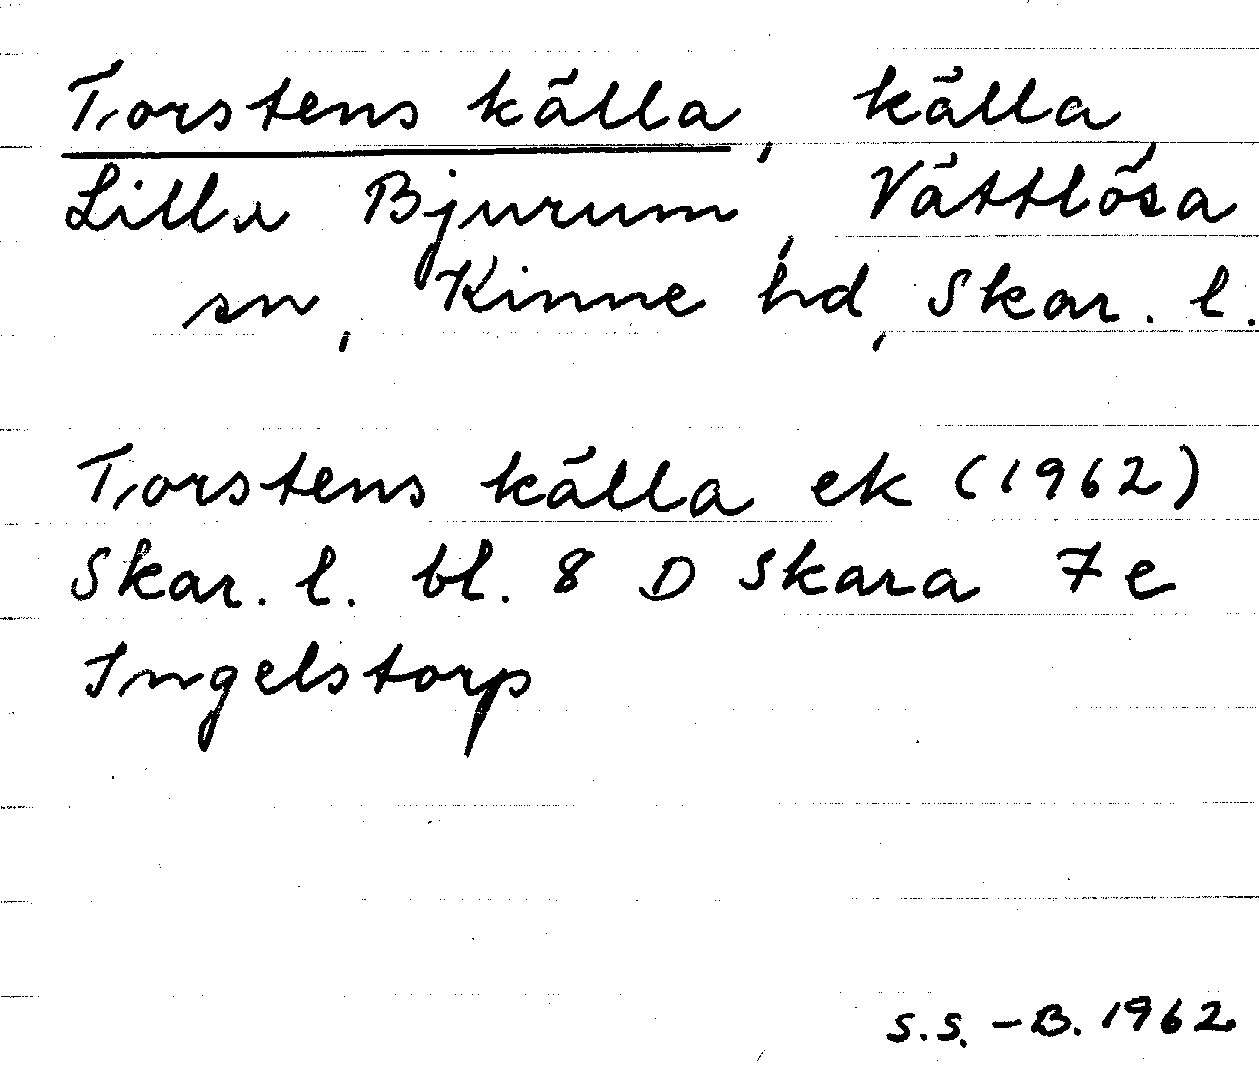 Torstens källa, källa,
Lilla Bjurum, Vättlösa
sn, Kinne hd, Skar. l.
Torstens källa ek (1962)
Skar. l. bl. 8 D Skara 7 e
Ingelstorp
S.S. - B. 1962